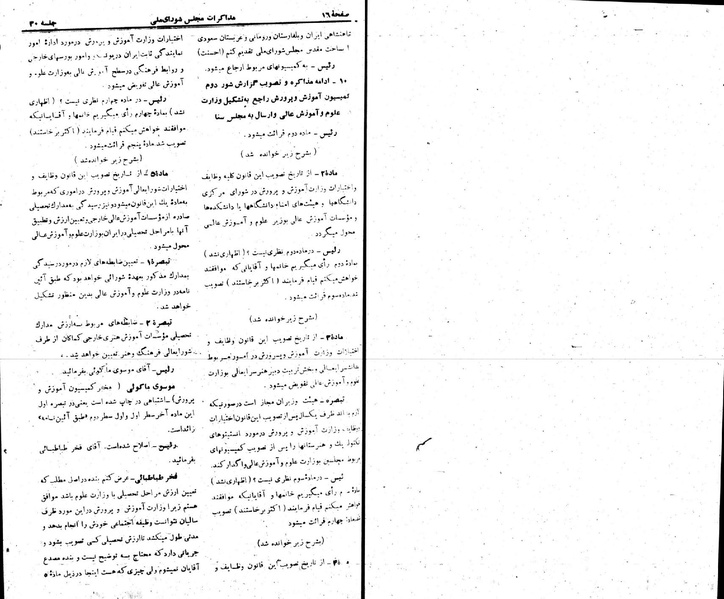 صفحهٔ ۱۶
مذاکرات مجلس شورای‌ملی
جلسه ۳۰
شاهنشاهی ایران وبلغارستان ورومانی و عربستان سعودی
ساحت مقدس مجلس‌شورای‌ملی تقدیم کنم (احسنت)
رئیس – به کمیسیونهای مربوط ارجاع میشود.
۱۰ – ادامه مذاکره و تصویب گزارش شور دوم
کمیسیون آموزش وپرورش راجع به‌تشکیل وزارت
علوم وآموزش عالی و ارسال به مجلس سنا
رئیس – ماده دوم قرائت میشود.
(بشرح زیر خوانده شد)
ماده۲ – از تاریخ تصویب این قانون کلیه وظایف
واختیارات وزارت آموزش و پرورش در شورای مرکزی
دانشگاهها و هیئت‌های امنای دانشگاهها یا دانشکده‌ها
و مؤسسات آموزش عالی بوزیر علوم و آموزش عالی
محول میگردد.
رئیس – درماده‌دوم نظری‌نیست ؟ (اظهاری‌نشد)
بماده دوم رأی میگیریم خانمها و آقایانی که موافقند
خواهش‌میکنم قیام فرمایند (اکثر برخاستند) تصویب
شد ماده‌سوم قرائت میشود.
(بشرح زیر خوانده شد)
ماده۳ – از تاریخ تصویب این قانون وظایف و
اختیارات وزارت آموزش وپرورش در امور مربوط
بوزارت
علوم و آموزش عالی تفویض میشود.
تبصره – هیئت وزیران مجاز است درصورتیکه
لازم بداند ظرف یکسال پس‌ازتصویب این‌قانون اختیارات
وزارت آموزش و پرورش درمورد انستیتوهای
تکنولوژیک و هنرستانها را پس از تصویب کمیسیونهای
مربوط مجلسین بوزارت علوم و آموزش‌عالی واگذار کند.
رئیس – درماده‌سوم نظری نیست ؟ (اظهاری‌نشد)
بماده سوم رأی میگیریم خانمها و آقایانیکه موافقند
خواهش میکنم قیام فرمایند (اکثر برخاستند) تصویب
شد ماده چهارم قرائت میشود
(بشرح زیر خوانده شد)
ماده ۴ – از تاریخ تصویب این قانون وظایف و
اختیارات وزارت آموزش و پرورش درمورد ادارهٔ امور
نمایندگی ثابت ایران دریونسکو وامور بورسهای خارجی
و روابط فرهنگی درسطح آموزش عالی به‌وزارت علوم و
آموزش عالی تفویض میشود.
رئیس – در ماده چهارم نظری نیست ؟ (اظهاری
نشد) بمادهٔ چهارم رأی میگیریم خانمها و آقایانیکه
موافقند خواهش میکنم قیام فرمایند (اکثر برخاستند)
تصویب شد مادهٔ پنجم قرائت‌میشود:
(بشرح زیر خوانده‌شد)
ماده۵ – از تاریخ تصویب این قانون وظایف و
اختیارات شورایعالی آموزش و پرورش دراموری که‌مربوط
به‌مادهٔ یک این قانون میشود ونیز رسیدگی به‌مدارک‌تحصیلی
صادره ازمؤسسات آموزش‌عالی‌خارجی وتعیین‌ارزش وتطبیق
آنها بامراحل تحصیلی در ایران بوزارت علوم و آموزش‌عالی
محول میشود.
تبصره۱ – تعیین ضابطه‌های لازم درمورد رسیدگی
بمدارک مذکور بعهدهٔ شورائی خواهد بود که طبق آئین
نامه‌در وزارت علوم و آموزش عالی بدین منظور تشکیل
خواهد شد.
تبصره ۲ – ضابطه‌های مربوط به‌ارزش مدارک
تحصیلی مؤسسات آموزش‌هنری‌خارجی کماکان از طرف
شورایعالی فرهنگ وهنر تعیین خواهد شد.
رئیس – آقای موسوی ماکوئی بفرمائید.
موسوی ماکوئی (مخبر کمیسیون آموزش و
پرورش) – اشتباهی در چاپ شده است یعنی‌در تبصره اول
این ماده آخر سطر اول واول سطر دوم «طبق آئین‌نامه»
زائداست.
رئیس – اصلاح شده‌است. آقای فخر طباطبائی
بفرمائید.
فخر طباطبائی – عرض کنم بنده دراصل مطلب که
تعیین ارزش مراحل تحصیلی با وزارت علوم باشد موافق
هستم زیرا وزارت آموزش و پرورش دراین مورد ظرف
سالیان نتوانست وظیفه اجتماعی خودش را انجام بدهد و
مدتی طول میکشد تاارزش تحصیلی کسی تصویب بشود و
جریانی دارد که محتاج به توضیح نیست و بنده مصدع
آقایان نمیشوم ولی چیزی که هست اینجا درذیل مادهٔ ۵